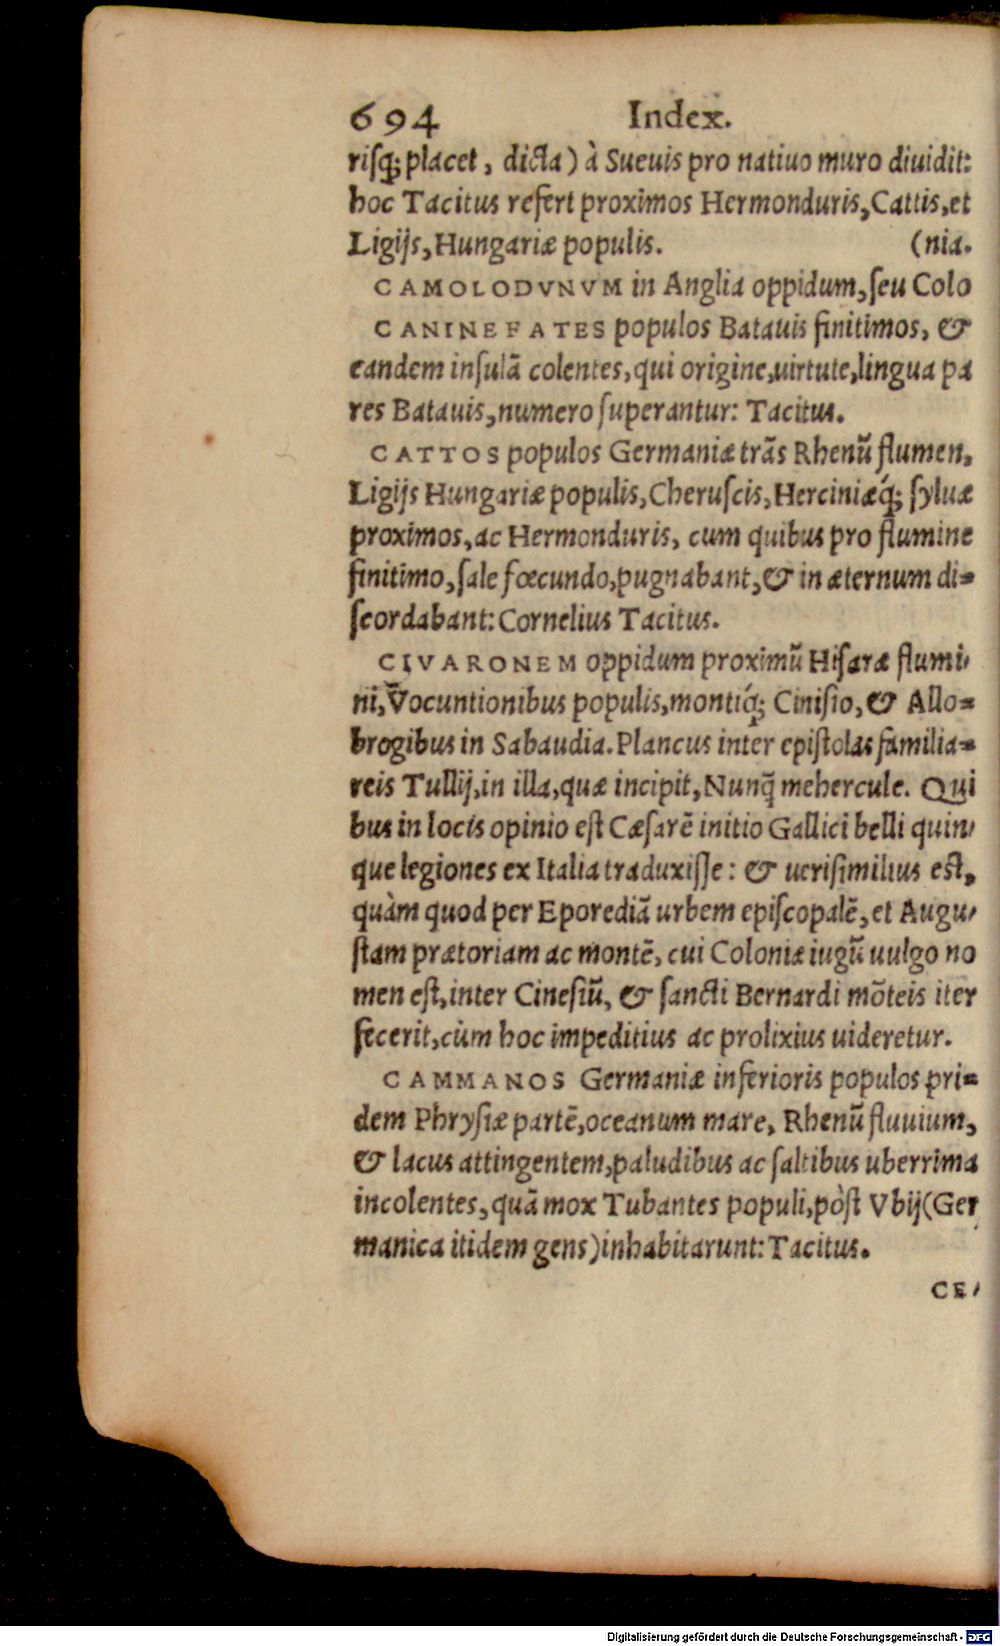 694 Index.
riſq́; placet, dicta) à Sueuis pro natiuo muro diuidit:
hoc Tacitus refert proximos Hermonduris, Cattis, et
Ligijs, Hungariæ populis. (nia.
CAMOLODVNVM in Anglia oppidum, ſeu Colo
CANINEFATES populos Batauis finitimos, &
eandem inſulā colentes, qui origine, uirtute, lingua pa
res Batauis, numero ſuperantur: Tacitus.
CATTOS populos Germaniæ trãs Rhenũ flumen,
Ligijs Hungariæ populis, Cheruſcis, Herciniæq́; ſyluæ
proximos, ac Hermonduris, cum quibus pro flumine
finitimo, ſale fœcundo, pugnabant, & in æternum di-
ſcordabant: Cornelius Tacitus.
CIVARONEM oppidum proximũ Hiſaræ flumi-
ni, Vocuntionibus populis, montiq́; Ciniſio, & Allo-
brogibus in Sabaudia. Plancus inter epiſtolas familia-
reis Tullij, in illa, quæ incipit, Nunq̃ mehercule. Qui
bus in locis opinio eſt Cæſarē initio Gallici belli quin-
que legiones ex Italia traduxiſſe: & ueriſimilius eſt,
quàm quod per Eporediā urbem epiſcopalē, et Augu-
ſtam prætoriam ac montē, cui Coloniæ iugũ uulgo no
men eſt, inter Cineſiũ, & ſancti Bernardi mõteis iter
fecerit, cùm hoc impeditius ac prolixius uideretur.
CAMMANOS Germaniæ inferioris populos pri-
dem Phryſiæ partē, oceanum mare, Rhenũ fluuium,
& lacus attingentem, paludibus ac ſaltibus uberrima
incolentes, quā mox Tubantes populi, pòſt Vbij (Ger
manica itidem gens) inhabitarunt: Tacitus.
CE-
Digitalisierung gefördert durch die Deutsche Forschungsgemeinschaft - DFG